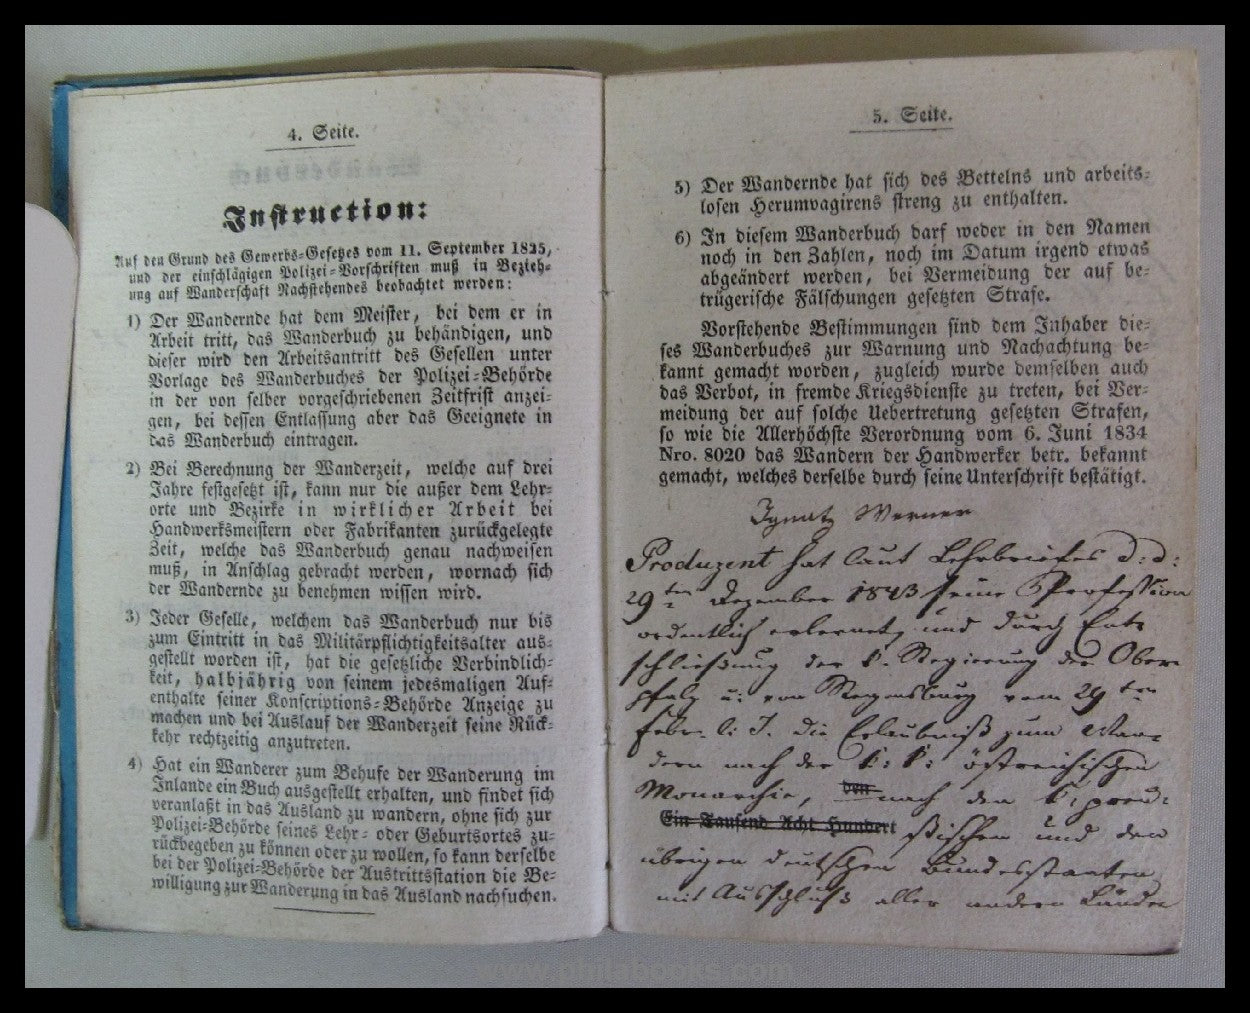 4. Seite.
Instruction:
Auf den Grund des Gewerbs-Gesetzes vom 11. September 1825,
und der einschlägigen Polizei-Vorschriften muß in Bezieh-
ung auf Wanderschaft Nachstehendes beobachtet werden:
1) Der Wandernde hat dem Meister, bei dem er in
Arbeit tritt, das Wanderbuch zu behändigen, und
dieser wird den Arbeitsantritt des Gesellen unter
Vorlage des Wanderbuches der Polizei-Behörde
in der von selber vorgeschriebenen Zeitfrist anzei-
gen, bei dessen Entlassung aber das Geeignete in
das Wanderbuch eintragen.
2) Bei Berechnung der Wanderzeit, welche auf drei
Jahre festgesetzt ist, kann nur die außer dem Lehr-
orte und Bezirke in wirklicher Arbeit bei
Handwerksmeistern oder Fabrikanten zurückgelegte
Zeit, welche das Wanderbuch genau nachweisen
muß, in Anschlag gebracht werden, wornach sich
der Wandernde zu benehmen wissen wird.
3) Jeder Geselle, welchem das Wanderbuch nur bis
zum Eintritt in das Militärpflichtigkeitsalter aus-
gestellt worden ist, hat die gesetzliche Verbindlich-
keit, halbjährig von seinem jedesmaligen Auf-
enthalte seiner Konscriptions-Behörde Anzeige zu
machen und bei Auslauf der Wanderzeit seine Rück-
kehr rechtzeitig anzutreten.
4) Hat ein Wanderer zum Behufe der Wanderung im
Inlande ein Buch ausgestellt erhalten, und findet sich
veranlaßt in das Ausland zu wandern, ohne sich zur
Polizei-Behörde seines Lehr- oder Geburtsortes zu-
rückbegeben zu können oder zu wollen, so kann derselbe
bei der Polizei-Behörde der Austrittsstation die Be-
willigung zur Wanderung in das Ausland nachsuchen.
5. Seite.
5) Der Wandernde hat sich des Bettelns und arbeits-
losen Herumvagirens streng zu enthalten.
6) In diesem Wanderbuch darf weder in den Namen
noch in den Zahlen, noch im Datum irgend etwas
abgeändert werden, bei Vermeidung der auf be-
trügerische Fälschungen gesetzten Strafe.
Vorstehende Bestimmungen sind dem Inhaber die-
ses Wanderbuches zur Warnung und Nachachtung be-
kannt gemacht worden, zugleich wurde demselben auch
das Verbot, in fremde Kriegsdienste zu treten, bei Ver-
meidung der auf solche Uebertretung gesetzten Strafen,
so wie die Allerhöchste Verordnung vom 6. Juni 1834
Nro. 8020 das Wandern der Handwerker betr. bekannt
gemacht, welches derselbe durch seine Unterschrift bestätigt.
Ignatz Werner
Produzent hat laut Lehrbriefes d: d:
29ten Dezember 1843 seine Profession
ordentlich erlernt, und durch Ent-
schließung der k. Regierung der Ober-
pfalz u: von Regensburg vom 29ten
Febr. l: J. die Erlaubniß zum Wan-
dern nach der k: k: östreichischen
Monarchie, den nach den k: preu-
Ein Tausend Acht Hundert ßischen und den
übrigen deutschen Bundesstaaten
mit Ausschluß aller andern Länder
www.philabooks.com